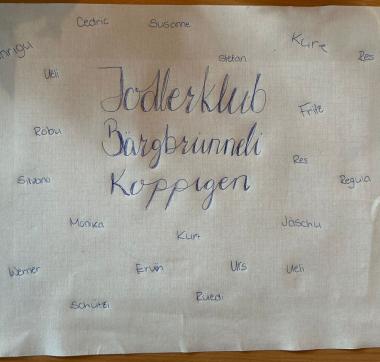 Cedric Susanne
Kurt
Stefan Res
Ueli
Jodlerklub
Fritz
Röbu
Bärgbrünneli
Res
Silvano Koppigen Regula
Monika Jaschu
Kurt
Werner Erwin Urs Ueli
Schützi Ruedi